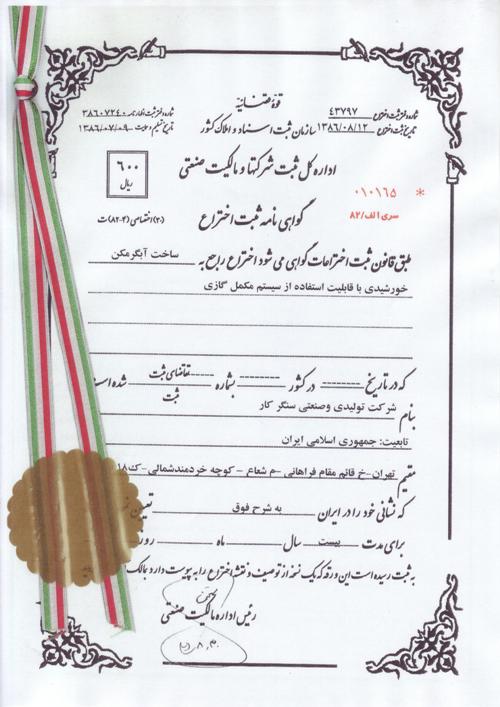 قوهٔ قضائیه
شماره ثبت اختراع ۴۳۷۹۷
شماره دفتر ثبت اظهارنامه ۳۸۶۰۷۲۴۰
تاریخ ثبت اختراع ۱۳۸۶/۰۸/۱۲
سازمان ثبت اسناد و املاک کشور
تاریخ تسلیم ۱۳۸۶/۰۷/۰۹
اداره کل ثبت شرکتها و مالکیت صنعتی
۶۰۰
ریال
* ۰۱۰۱۶۵
سری الف/۸۲
گواهی نامه ثبت اختراع
(۲۰) اختصاصی (۴-۸۲) ت
طبق قانون ثبت اختراعات گواهی می شود اختراع راجع به ساخت آبگرمکن
خورشیدی با قابلیت استفاده از سیستم مکمل گازی
که در تاریخ -------- در کشور -------- بشماره ------ تقاضای ثبت
ثبت شده است
بنام شرکت تولیدی وصنعتی سنگر کار
تابعیت: جمهوری اسلامی ایران
مقیم تهران-خ قائم مقام فراهانی -م شعاع - کوچه خردمندشمالی -ک۱۸
که نشانی خود را در ایران به شرح فوق تعیین
برای مدت بیست سال ------ ماه ------ روز
به ثبت رسیده است این ورقه که یک نسخه از توصیف و نقشه اختراع را به پیوست دارد بمالک
رئیس اداره مالکیت صنعتی